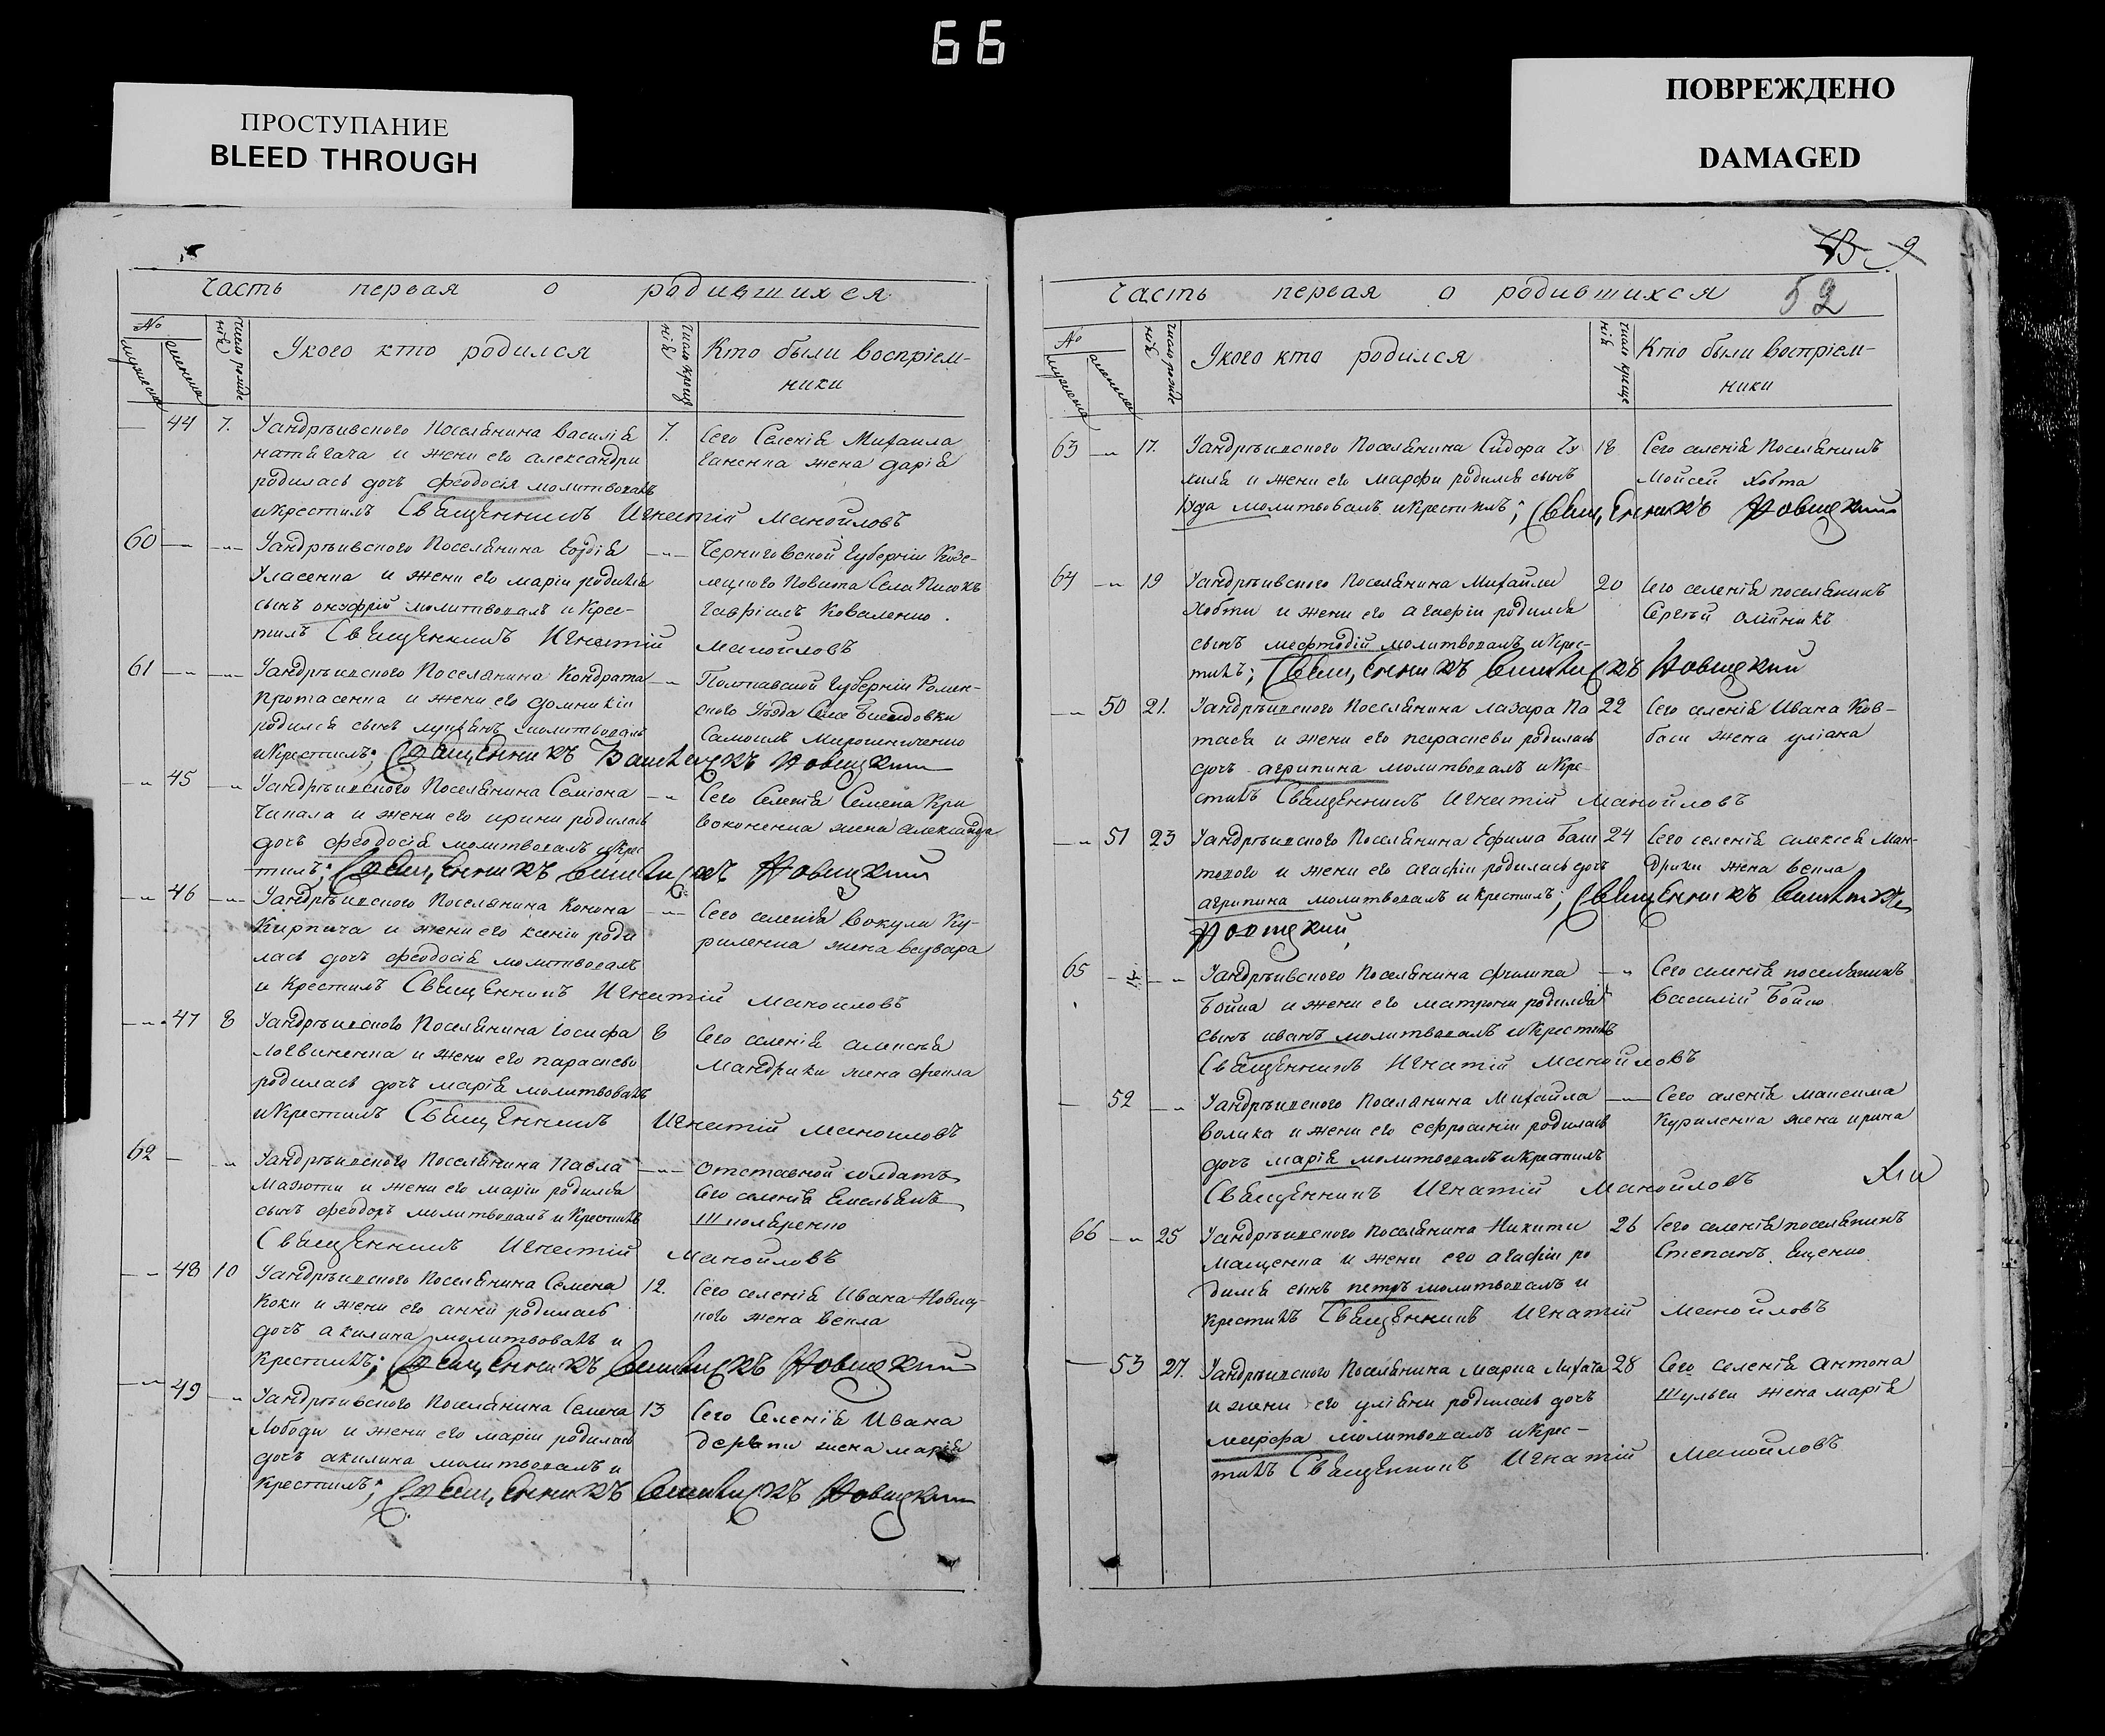 66
ПРОСТУПАНИЕ
BLEED THROUGH
ПОВРЕЖДЕНО
DAMAGED
Часть первая о родившихся
№
мужеска
женска
число рожде
нія
У кого кто родился
число креще
нія
Кто были воспріем-
ники
44 7. Уандрѣивского Поселянина василія 7. Сего Селенія Михаила
и жени его александри жена дарія
родилась дочь феодосія молитвовалъ
и крестилъ Священникъ Игнатій Манойловъ
60 Уандрѣивского Поселянина Черниговской Губерніи Козе-
Уласенка и жени его маріи родился лецкого Повита Села
сынъ онуфрій молитвовалъ и крес- Гавріилъ Коваленко.
тилъ Священникъ Игнатій Манойловъ
61 Уандрѣивского Поселянина Кондрата Полтавской Губерніи Ромен-
Протасенка и жени его домникіи ского Уѣзда Села
родился сынъ молитвовалъ Самоилъ Мирошниченко
и крестилъ; Священникъ Новицкий
45 Уандрѣивского Поселянина Семіона Сего Селенія Семена Кри
Чипала и жени его ирини родилась воконенка жена александра
дочь феодосія молитвовалъ и крес-
тилъ; Священникъ Новицкий
46 Уандрѣивского Поселянина Конона Сего селенія Вокули Ку-
Кирпича и жени его ксеніи роди риленка жена варвара
лась дочь феодосія молитвовалъ
и крестилъ Священникъ Игнатій Манойловъ
47 8 Уандрѣивского Поселянина іосифа 8 Сего селенія алексѣя
Логвиненка и жени его параскеви Мандрики жена фекла
родилась дочь марія молитвовалъ
и крестилъ Священникъ Игнатій Манойловъ
62 Уандрѣивского Поселянина Павла отставной солдатъ
и жени его маріи родился Сего селенія Емельянъ
сынъ феодоръ молитвовалъ и крестилъ Школяренко
Священникъ Игнатій Манойловъ
48 10 Уандрѣивского Поселянина Семена 12. Сего селенія Ивана Новиц-
Коки и жени его анни родилась кого жена векла
дочь акилина молитвовалъ и
крестилъ; Священникъ Новицкий
49 Уандрѣивского Поселянина Семена 13 Сего Селенія Ивана
Лободи и жени его маріи родилась жена марія
дочь акилина молитвовалъ и
крестилъ; Священникъ Новицкий
9
Часть первая о родившихся 52
№
мужеска
женска
число рожде
нія
У кого кто родился
число креще
нія
Кто были воспріем-
ники
63 17. Уандрѣивского Поселянина Сидора 18 Сего селенія Поселянинъ
и жени его марфи родился сынъ Мойсей Хобта
молитвовалъ и крестилъ; Священникъ Новицкий
64 19 Уандрѣивского Поселянина Михайли 20 Сего селенія поселянинъ
Хобти и жени его агафіи родился Сергѣй олійникъ
сынъ мефтодій молитвовалъ и крес-
тилъ; Священникъ Новицкий
50 21. Уандрѣивского Поселянина лазара 22 Сего селенія Ивана Ков-
и жени его параскеви родилась баси жена уліана
дочь агрипина молитвовалъ и кре-
стилъ Священникъ Игнатій Манойловъ
51 23 Уандрѣивского Поселянина Ефима Баш 24 Сего селенія алексѣя Ман-
тового и жени его агафіи родилась дочь дрики жена векла
агрипина молитвовалъ и крестилъ; Священникъ
Новицкий
65 Уандрѣивского Поселянина филипа Сего селенія поселянинъ
Бойка и жени его матрони родился Василій Бойко
сынъ иванъ молитвовалъ и крестилъ
Священникъ Игнатій Манойловъ
52 Уандрѣивского Поселянина Михайла Сего селенія максима
Волика и жени его ефросиніи родилась Куриленка жена ирина
дочь марія молитвовалъ и крестилъ
Священникъ Игнатій Манойловъ
66 25 Уандрѣивского Поселянина Никити 26 Сего селенія поселянинъ
Мащенка и жени его агафіи ро Степанъ Ященко
дился сынъ петръ молитвовалъ и
крестилъ Священникъ Игнатій Манойловъ
53 27. Уандрѣивского Поселянина Марка Лихача 28 Сего селенія антона
и жени его уліяни родилась дочь Шульги жена марія
марфа молитвовалъ и крес-
тилъ Священникъ Игнатій Манойловъ